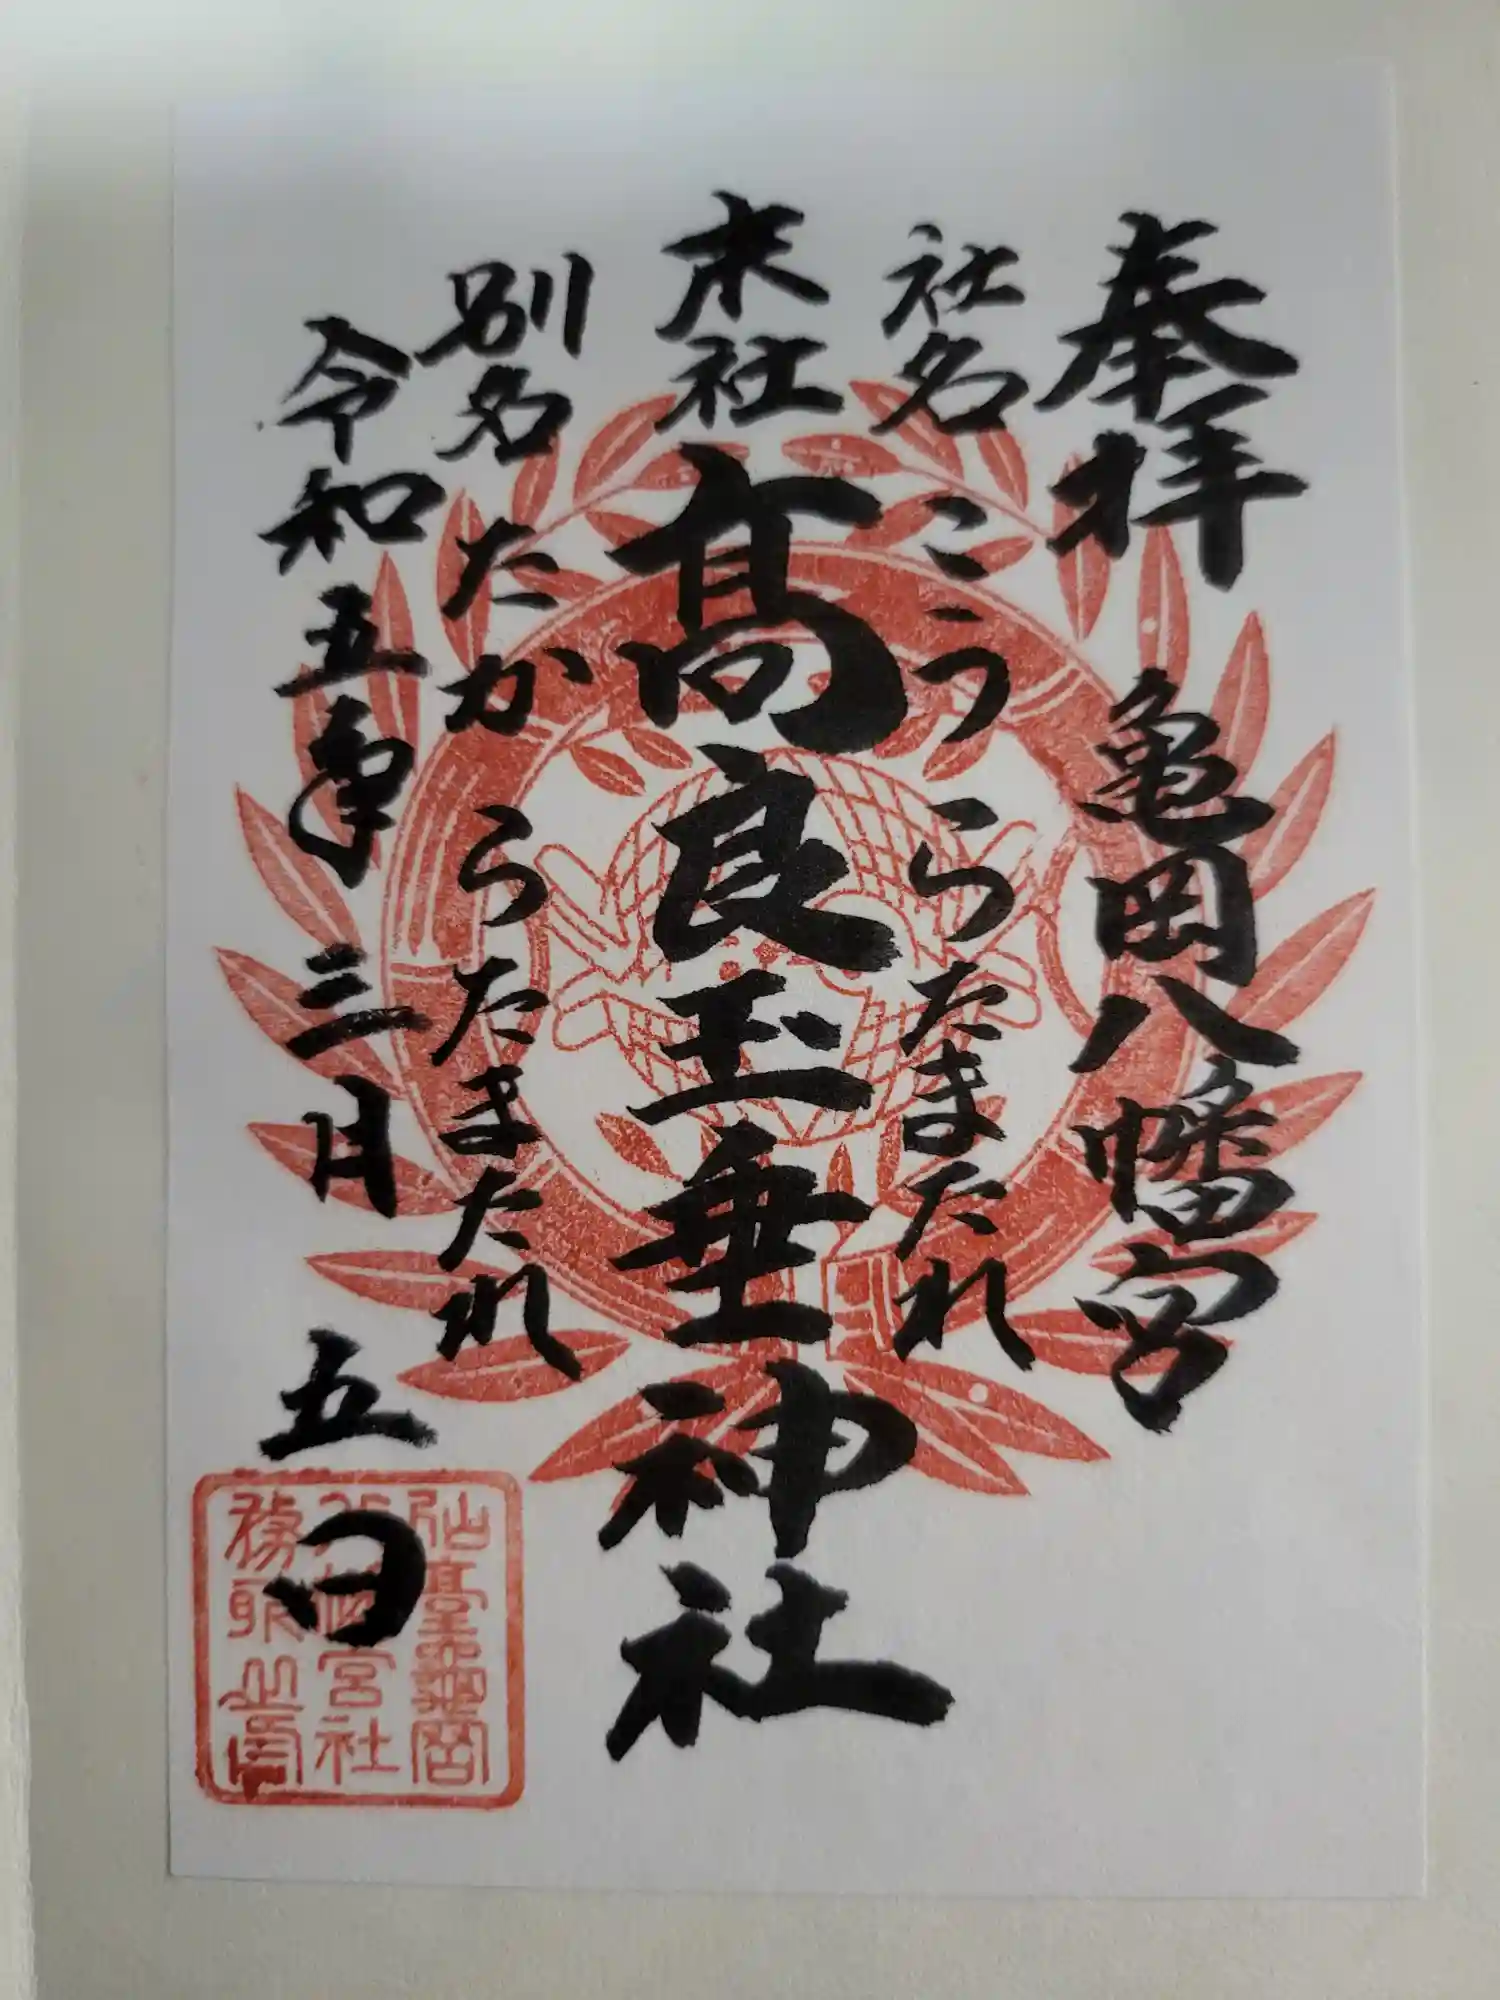 奉拝 亀岡八幡宮
社名 こうらたまたれ
末社 髙良玉垂神社
別名 たかうらたまたれ
令和五年三月五日
仙臺龜岡
八幡宮社
務所之印